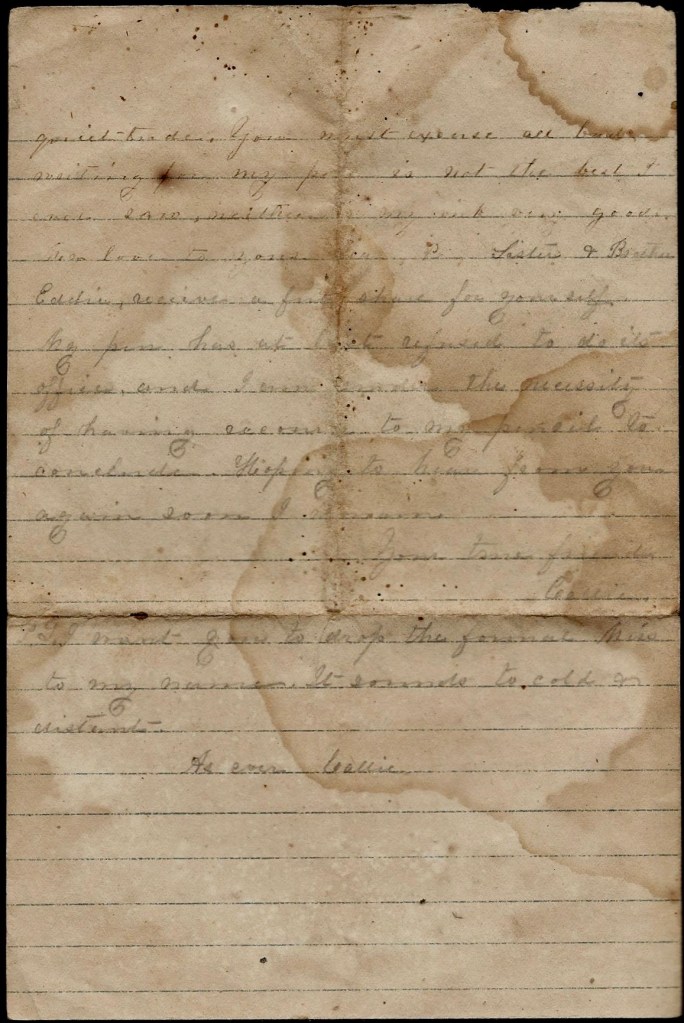 You must excuse all bad
writing for my pen is not the best I
ever saw, neither is my ink very good.
love to your Sister & Brother
Eddie, receive a full share for yourself.
My pen has at last refused to do its
office, and I am under the necessity
of having recourse to my pencil to
conclude. Hoping to hear from you
again soon I remain
Your true friend
Callie
P.S. I want you to drop the formal Miss
to my name. It sounds to cold &
distant.
As ever Callie